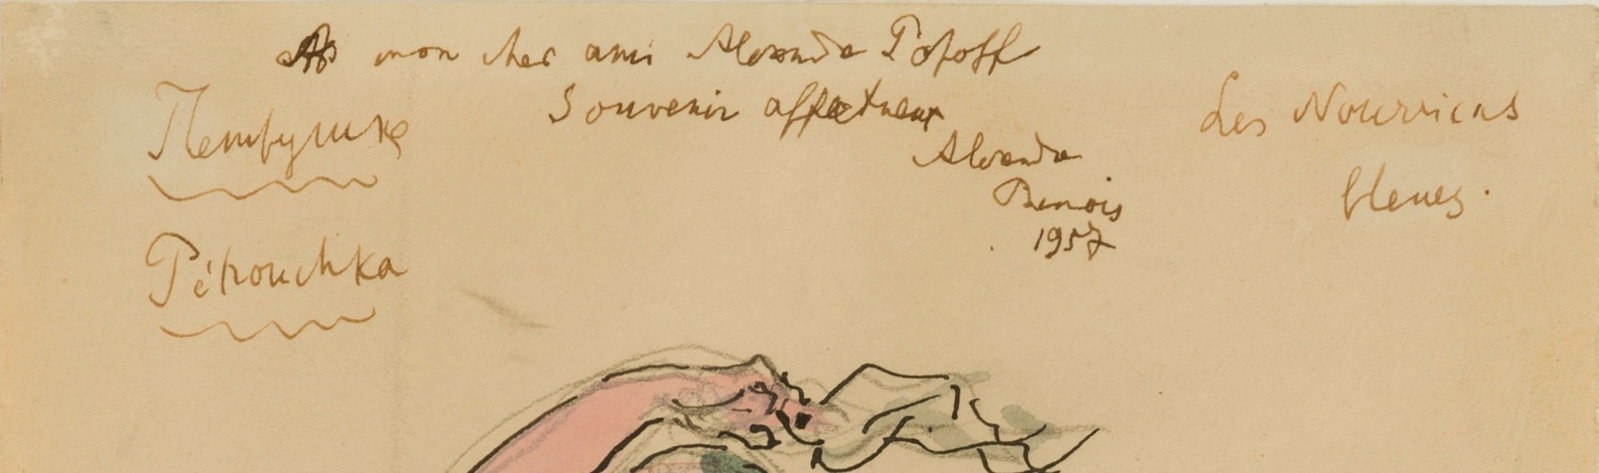 A mon cher ami Alexandre Popoff
Souvenir affectueux
Alexandre
Benois
1957
Петрушка
Pétrouchka
Les Nourrices
bleues.